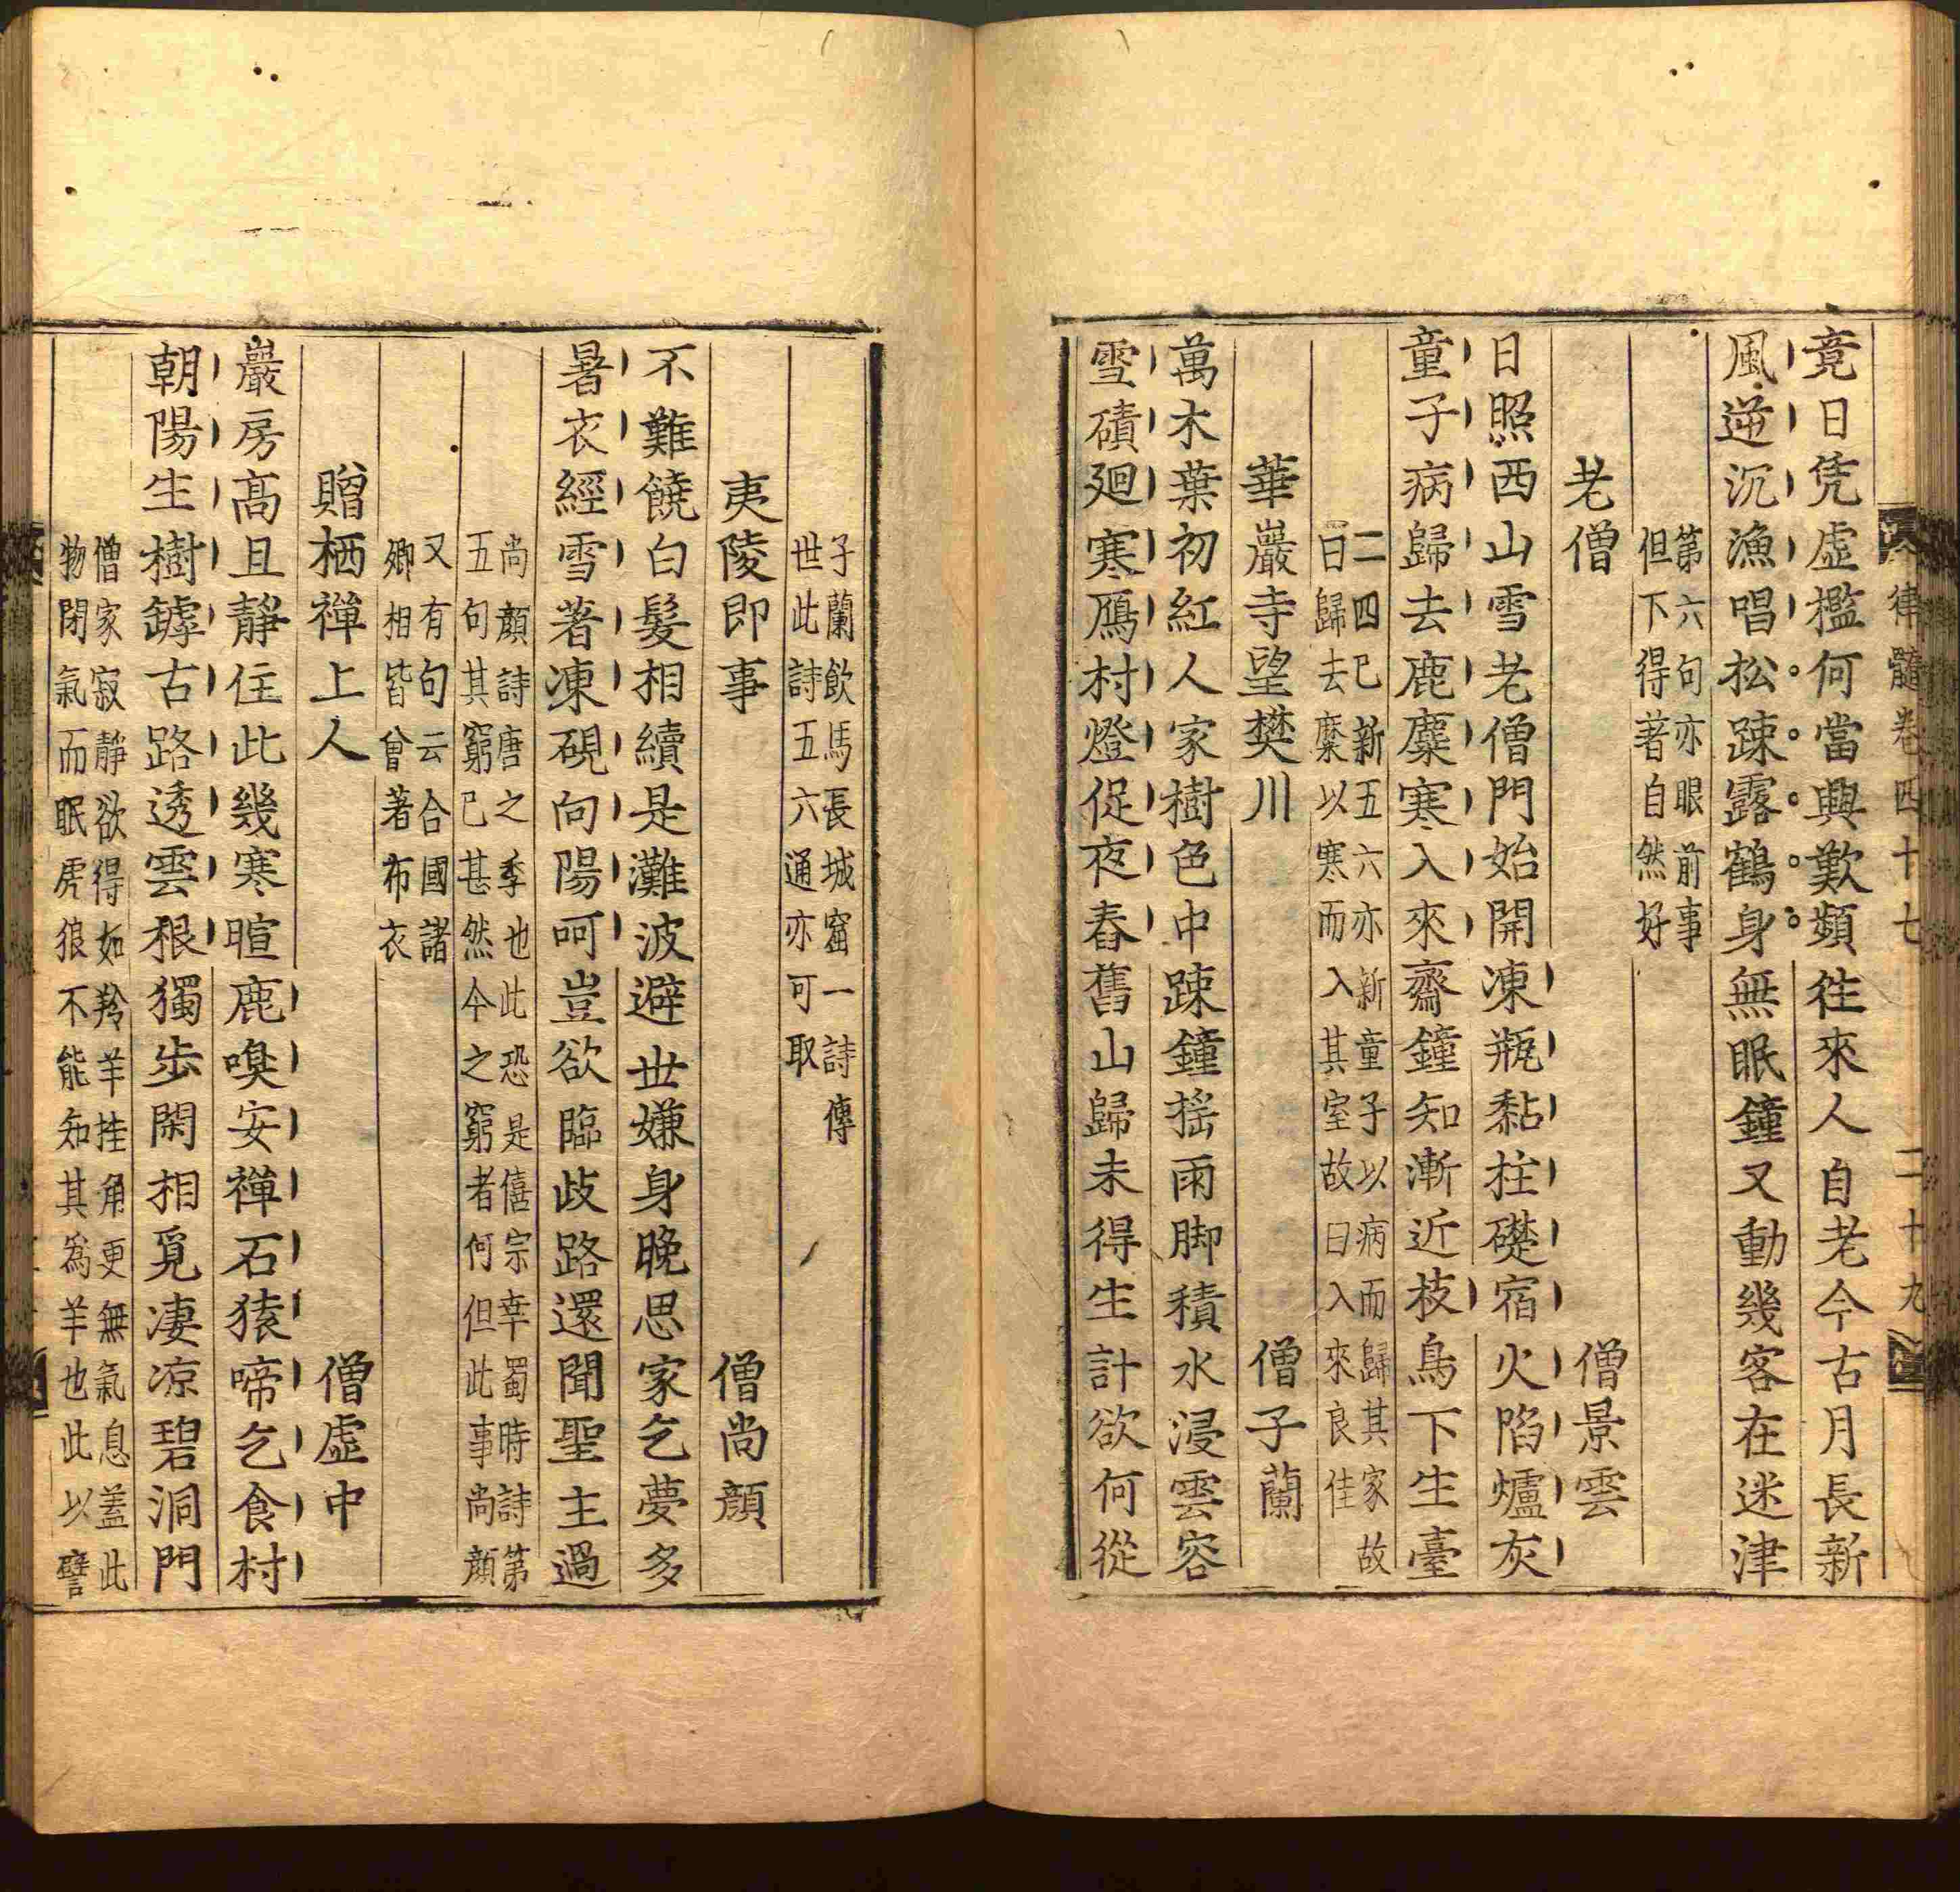 律髓卷四十七 二十九
竟日凭虛檻何當興歎頻徃來人自老今古月長新
風逆沉漁唱松踈露鶴身無眠鐘又動幾客在迷津
第六句亦眼前事
但下得著自然好
老僧 僧景雲
日照西山雪老僧門始開凍瓶黏柱礎宿火陷爐灰
童子病歸去鹿麋寒入來齋鐘知漸近枝鳥下生臺
二四已新五六亦新童子以病而歸其家故
曰歸去麋以寒而入其室故曰入來良佳
華巖寺望樊川 僧子蘭
萬木葉初紅人家樹色中踈鐘摇雨脚積水浸雲容
雪磧廻寒鴈村燈促夜舂舊山歸未得生計欲何從
子蘭飲馬長城窟一詩傳
世此詩五六通亦可取
夷陵即事 僧尚顔
不難饒白髮相續是灘波避世嫌身晚思家乞夢多
暑衣經雪著凍硯向陽呵豈欲臨歧路還聞聖主過
尚顔詩唐之季也此恐是僖宗幸蜀時詩第
五句其窮已甚然今之窮者何但此事尚顔
又有句云合國諸
卿相皆曾著布衣
贈栖禪上人 僧虛中
巖房高且靜住此幾寒暄鹿嗅安禪石猿啼乞食村
朝陽生樹罅古路透雲根獨歩閑相覓凄凉碧洞門
僧家寂靜欲得如羚羊挂角更無氣息蓋此
物閉氣而眠虎狼不能知其為羊也此以譬